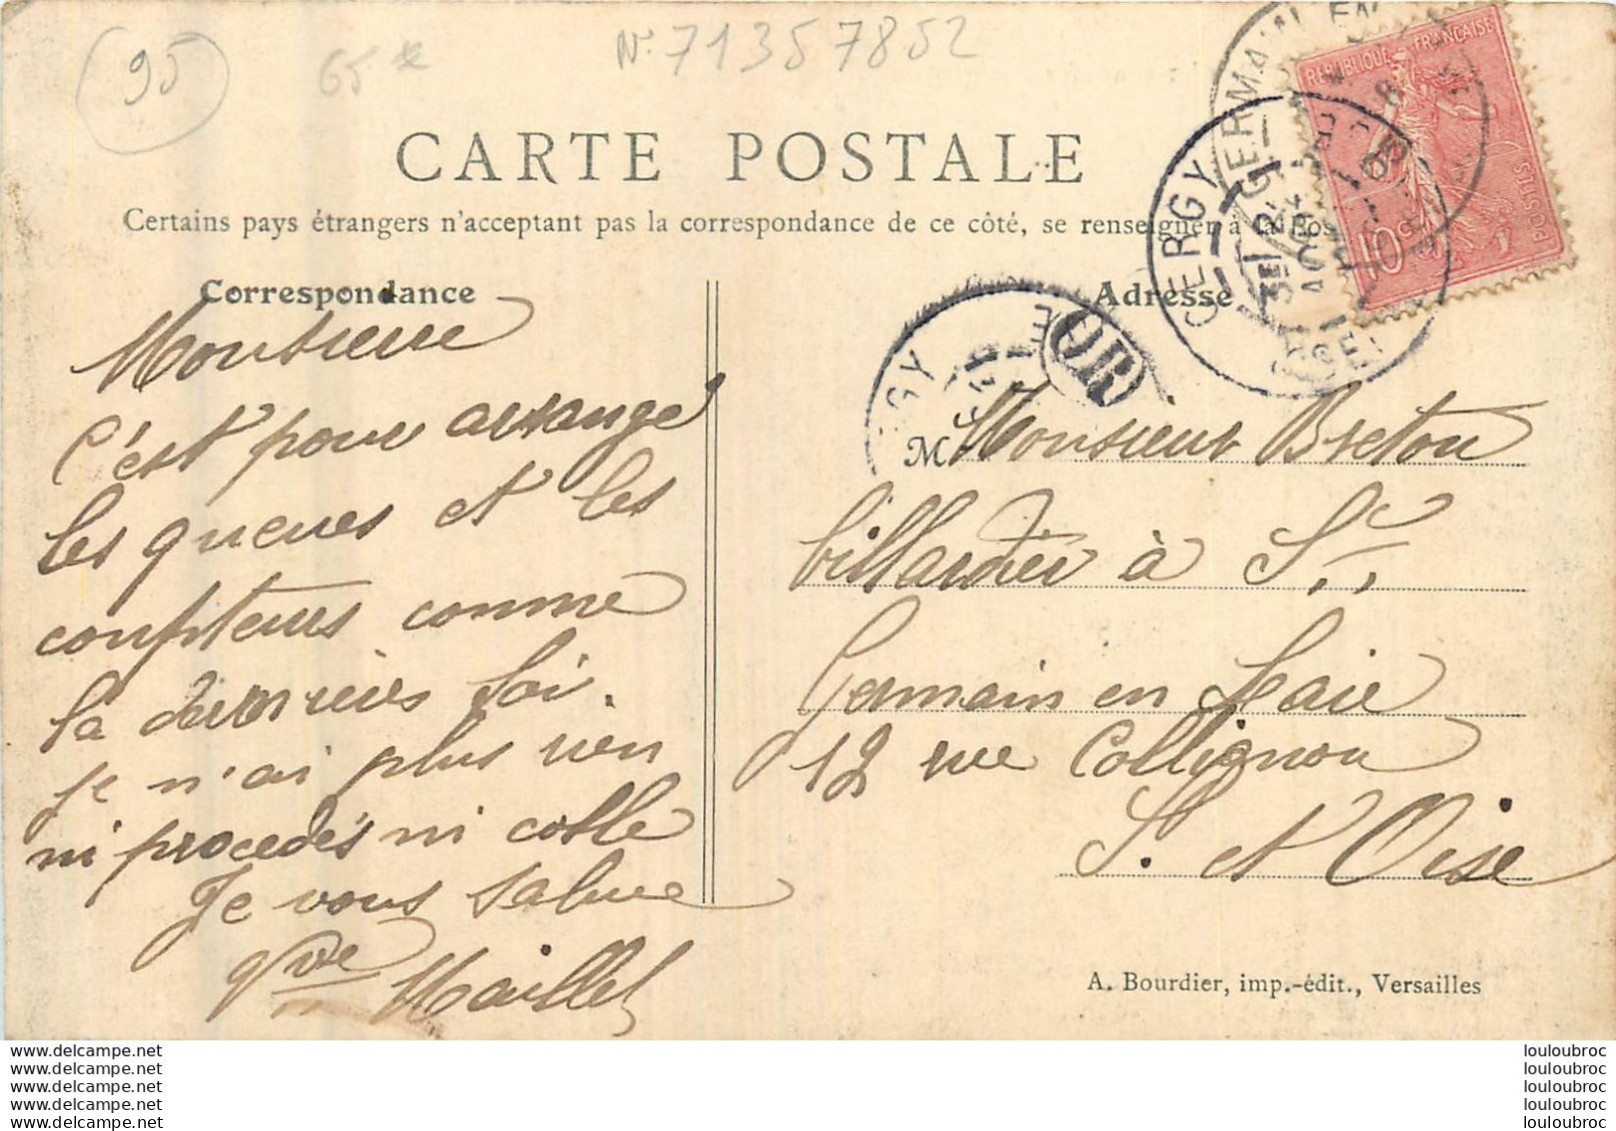 95
65*
N° 71357852
CARTE POSTALE
Certains pays étrangers n'acceptant pas la correspondance de ce côté, se renseigner à la Pos
Correspondance
Monsieur
C'est pour arrangé
les queues et les
compteurs comme
la dernières foi.
je n'ai plus rien
ni procédés ni colle
Je vous salue
Vve Maillet
Adresse
CERGY
GERMAIN EN
OR
RÉPUBLIQUE FRANÇAISE
POSTES
10c
GY
M Monsieur Breton
billardier à St
Germain en Laie
12 rue Collignon
S. et Oise
A. Bourdier, imp.-édit., Versailles
www.delcampe.net
www.delcampe.net
www.delcampe.net
www.delcampe.net
www.delcampe.net
louloubroc
louloubroc
louloubroc
louloubroc
louloubroc